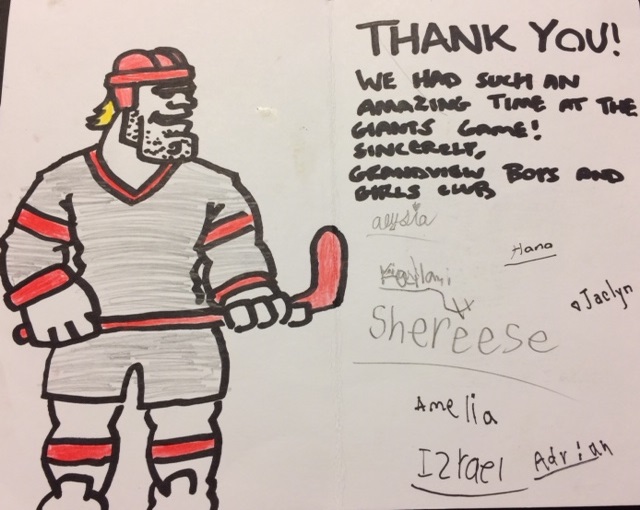 THANK YOU!
WE HAD SUCH AN
AMAZING TIME AT THE
GIANTS GAME!
SINCERELY,
GRANDVIEW BOYS AND
GIRLS CLUB
alysia
Hana
Jaclyn
Shereese
Amelia
Izrael Adrian